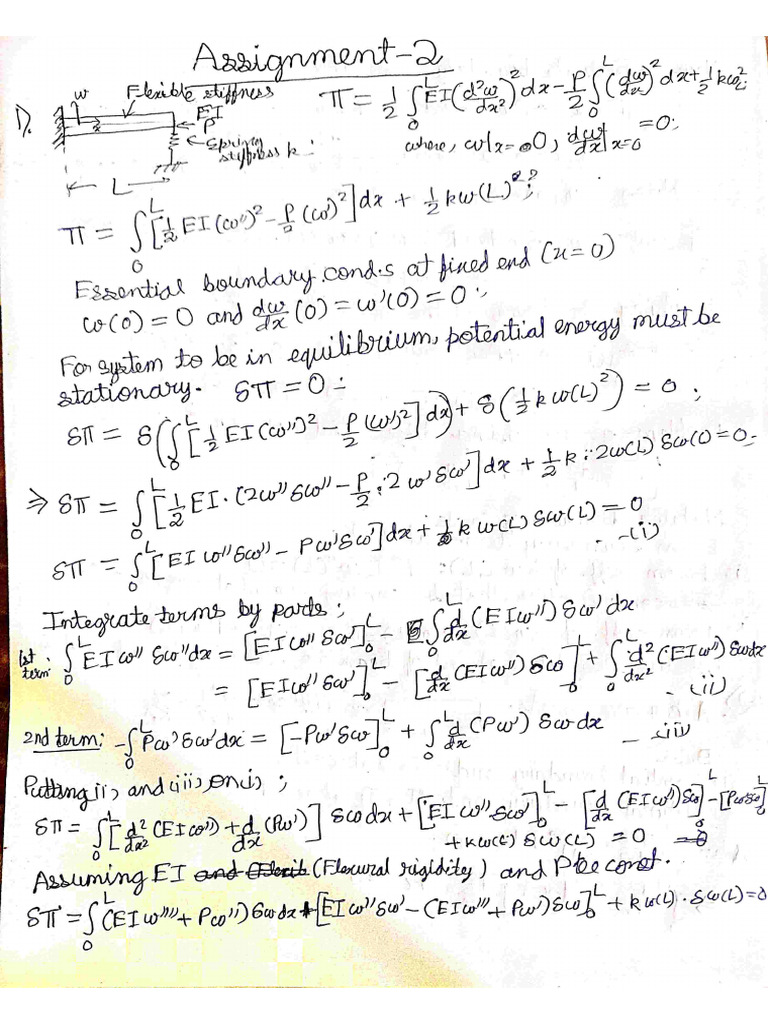 Assignment-2
1). w Flexible stiffness
EI
P
Spring stiffness k
L
π = 1/2 ∫₀ᴸ EI(d²w/dx²)² dx - P/2 ∫₀ᴸ (dw/dx)² dx + 1/2 kw²
where, w|x=0, dw/dx|x=0 = 0;
π = ∫₀ᴸ [1/2 EI(w'')² - P/2 (w')²] dx + 1/2 kw(L)²;
Essential boundary cond.s at fixed end (x=0)
w(0) = 0 and dw/dx (0) = w'(0) = 0;
For system to be in equilibrium, potential energy must be
stationary. δπ = 0:
δπ = δ(∫₀ᴸ [1/2 EI(w'')² - P/2 (w')²] dx) + δ(1/2 kw(L)²) = 0;
⇒ δπ = ∫₀ᴸ [1/2 EI·(2w''δw'' - P/2·2w'δw'] dx + 1/2 k·2w(L) δw(L) = 0
δπ = ∫₀ᴸ [EIw''δw'' - Pw'δw'] dx + kw(L) δw(L) = 0 -(i)
Integrate terms by parts;
1st term: ∫₀ᴸ EIw''δw''dx = [EIw''δw']₀ᴸ - ∫₀ᴸ d/dx (EIw'') δw'dx
= [EIw''δw']₀ᴸ - [d/dx (EIw'') δw]₀ᴸ + ∫₀ᴸ d²/dx² (EIw'') δwdx -(ii)
2nd term: -∫₀ᴸ Pw'δw'dx = [-Pw'δw]₀ᴸ + ∫₀ᴸ d/dx (Pw') δwdx -(iii)
Putting (ii) and (iii) on (i);
δπ = ∫₀ᴸ [d²/dx² (EIw'') + d/dx (Pw')] δwdx + [EIw''δw']₀ᴸ - [d/dx (EIw'') δw]₀ᴸ - [Pw'δw]₀ᴸ
+ kw(L) δw(L) = 0
Assuming EI (Flexural rigidity) and P be const.
δπ = ∫₀ᴸ (EIw'''' + Pw'') δwdx + [EIw''δw' - (EIw''' + Pw') δw]₀ᴸ + kw(L)·δw(L) = 0